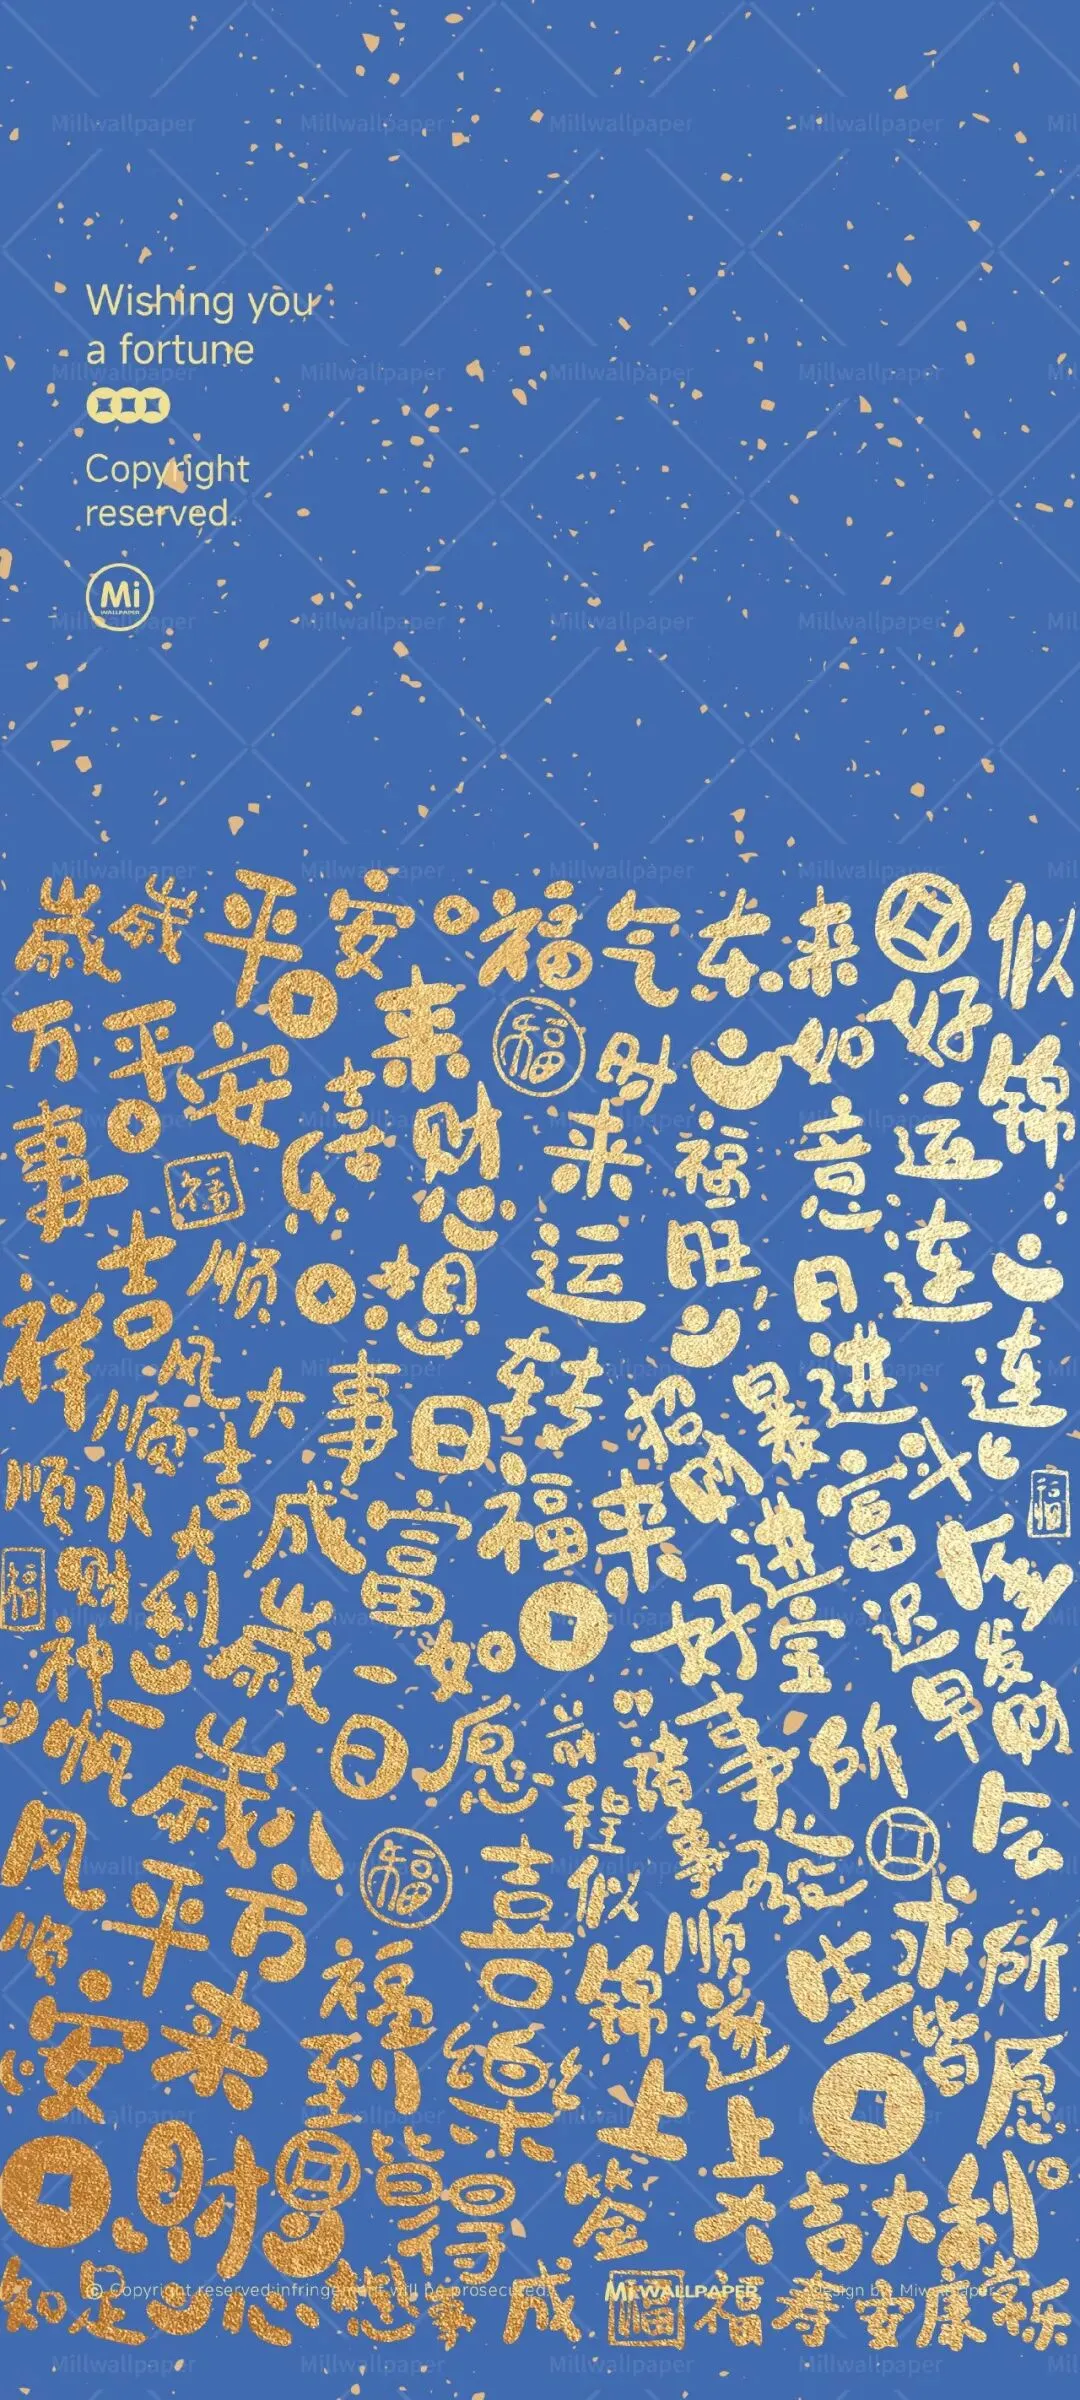 Wishing you
a fortune
Copyright
reserved.
Mi
WALLPAPER
歲歲平安
福气东来
似锦
万事吉祥
平安喜乐
来财
福
财来
如意
好运连连
福
心想事成
顺
来运转
福旺
日进斗金
风顺
大吉
大吉
事
日
招财进宝
暴富
顺水
顺利
财神
福
成
富
福来
好事
迟早
发财
歲歲平安
一日
如愿
前程似锦
诸事顺遂
所
会
一帆风顺
八方来财
福
喜乐
福到
所求皆所愿
上上签
皆得
大吉大利
知足
心想事成
福
福寿安康
常乐
© Copyright reserved:infringement will be prosecuted
Mi WALLPAPER
Design by Miwallpaper
Millwallpaper